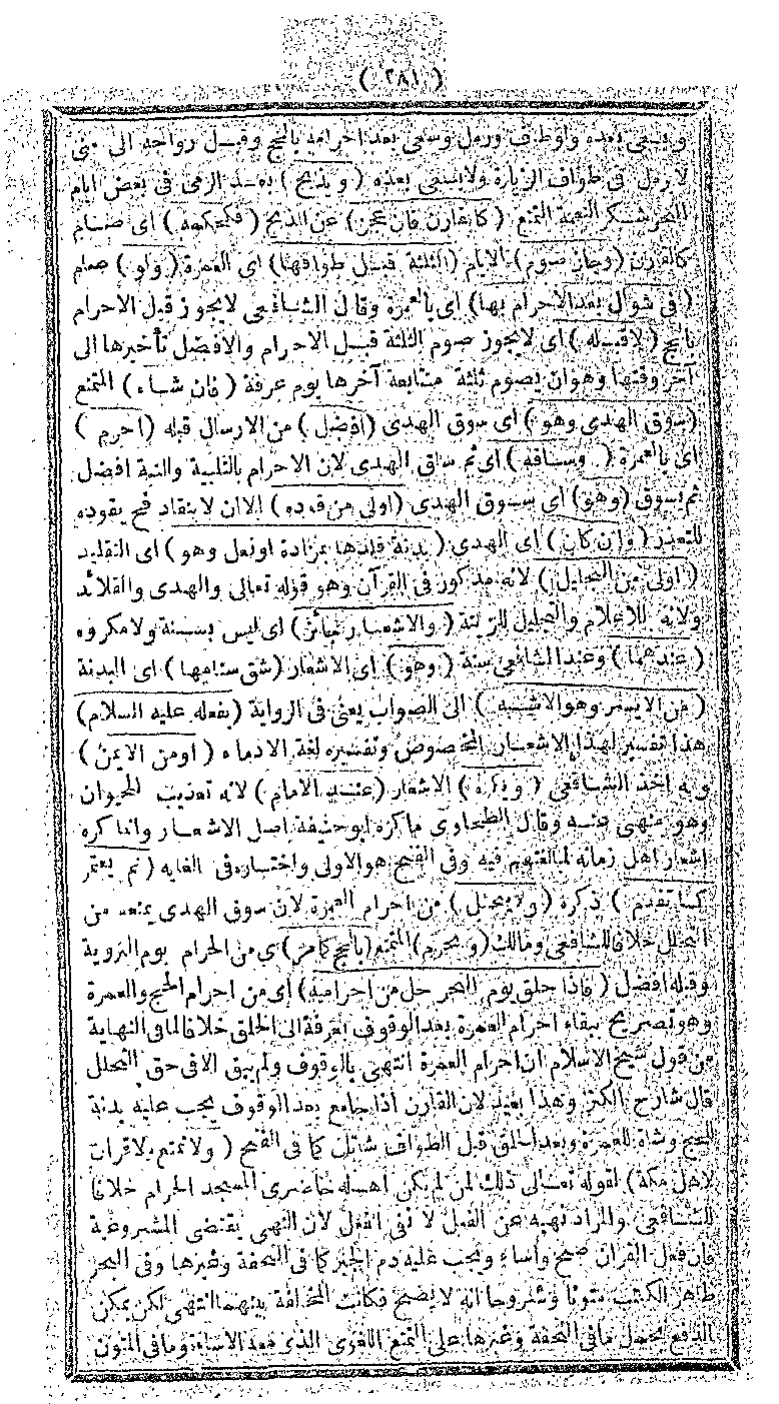 ( ٢٨١ )
ويسعى بعده ولو طاف ورمل وسعى بعد احرامه بالحج وقبل رواحه الى منى
لا رمل فى طواف الزيارة ولا يسعى بعده ( ويذبح ) بعد الرمى فى بعض ايام
النحر شكر النعمة التمتع ( كالقارن فان عجز ) عن الذبح ( فكحكمه ) اى صام
كالقرن ( وجاز صوم ) الايام ( الثلثة قبل طوافها ) اى العمرة ( ولو ) صام
( فى شوال بعد الاحرام بها ) اى بالعمرة وقال الشافعى لايجوز قبل الاحرام
بالحج ( لاقبله ) اى لايجوز صوم الثلثة قبل الاحرام والافضل تأخيرها الى
آخر وقتها وهو ان يصوم ثلثة متتابعة آخرها يوم عرفة ( فان شاء ) المتمتع
( سوق الهدى وهو ) اى سوق الهدى ( افضل ) من الارسال قبله ( احرم )
اى بالعمرة ( وساقه ) اى ثم ساق الهدى لان الاحرام بالتلبية والنية افضل
ثم يسوق ( وهو ) اى سوق الهدى ( اولى من قوده ) الا ان لاينقاد فح يقوده
للتعذر ( وان كان ) اى الهدى ( بدنة قلدها بمزادة اونعل وهو ) اى التقليد
( اولى من التجليل ) لانه مذكور فى القرآن وهو قوله تعالى والهدى والقلائد
ولانه للاعلام والتجليل للزينة ( والاشعار جائز ) اى ليس بسنة ولا مكروه
( عندهما ) وعند الشافعى سنة ( وهو ) اى الاشعار ( شق سنامها ) اى البدنة
( من الايسر وهو الاشبه ) الى الصواب يعنى فى الرواية ( بفعله عليه السلام )
هذا تفسير لهذا الاشعار المخصوص وتفسيره لغة الادماء ( اومن الايمن )
وبه اخذ الشافعى ( ويكره ) الاشعار ( عند الامام ) لانه تعذيب الحيوان
وهو منهى عنه وقال الطحاوى ماكره ابوحنيفة اصل الاشعار وانما كره
اشعار اهل زمانه لمبالغتهم فيه وفى الفتح هو الاولى واختاره فى الغايه ( ثم يعتمر
كما تقدم ) ذكره ( ولا يتحلل ) من احرام العمرة لان سوق الهدى يمنعه من
التحلل خلافا للشافعى ومالك ( ويحرم ) المتمتع ( بالحج كما مر ) اى من الحرام يوم التروية
وقبله افضل ( فاذا حلق يوم النحر حل من احراميه ) اى من احرام الحج والعمرة
وهو تصريح ببقاء احرام العمرة بعد الوقوف بعرفة الى الحلق خلافا لما فى النهاية
من قول شيخ الاسلام ان احرام العمرة انتهى بالوقوف ولم يبق الا فى حق التحلل
قال شارح الكنز وهذا بعيد لان القارن اذا جامع بعد الوقوف يجب عليه بدنة
للحج وشاة للعمرة وبعد الحلق قبل الطواف شاتان كما فى الفتح ( ولا تمتع ولاقران
لاهل مكة ) لقوله تعالى ذلك لمن لم يكن اهله حاضرى المسجد الحرام خلافا
للشافعى والمراد نهيه عن الفعل لا نفى الفعل لان النهى يقتضى المشروعية
فان فعل القران صح واساء ويجب عليه دم الجبر كما فى التحفة وغيرها وفى البحر
ظاهر الكتب متونا وشروحا انه لايصح فكانت المخالفة بينهما انتهى لكن يمكن
الدفع بحمل ما فى التحفة وغيرها على التمتع اللغوى الذى معه الاساءة وما فى المتون